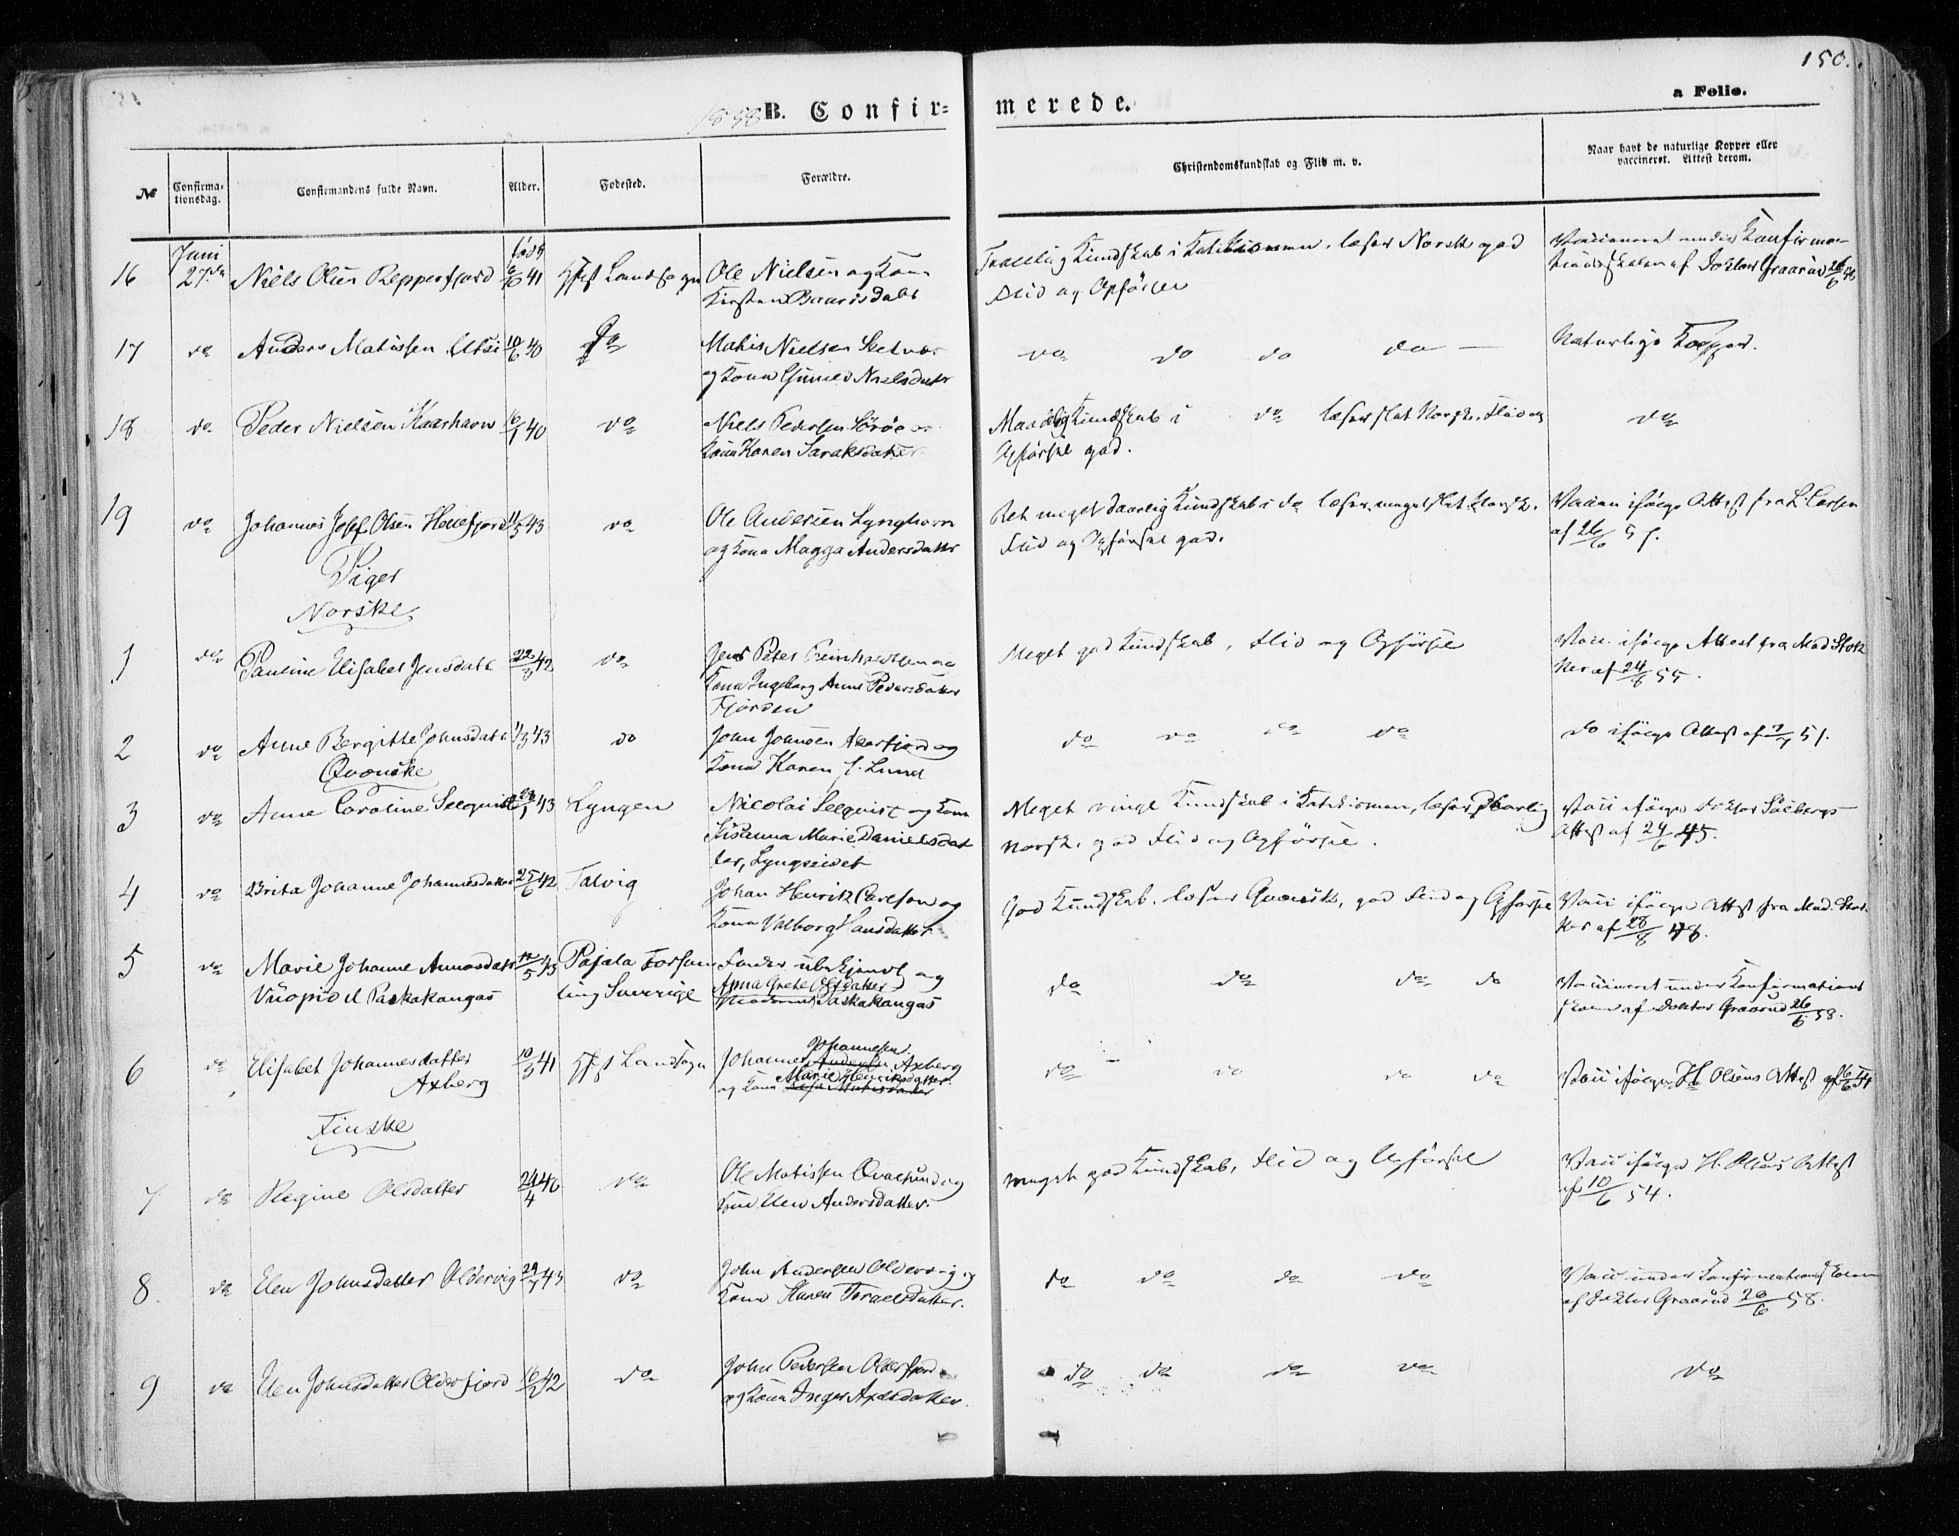 150.
a Folio.
1858 B. Confir- merede.
№ Confirma-tionsdag. Confirmandens fulde Navn. Alder. Fødested. Forældre. Christendomskundskab og Flid m. v. Naar havt de naturlige Kopper eller vaccineret. Attest derom.
Juni født
16 27de Niels Olsen Repperfjord 41 Hfest Landsogn Ole Nielsen og Kone Kundskab i læser Norsk god Vaccineret under Konfirma-
Kirsten Flid og Opførsel af Doktor Graarud 26/6 58
17 do Anders Mathissen Utsi 10/6 40 do Mathis Nielsen do do do do Naturlige Kopper.
og Kone Gunild Nielsdatter
18 do Peder Nielsen Kaarhavn 16/1 40 do Niels Pedersen Sørøe Maadelig Kundskab i do læser slet Norsk, Flid og do
Kone Karen Saraksdatter Opførsel god.
19 do Johannes Josef Olsen 11/5 43 do Ole Andersen Lynghavn Ret meget daarlig Kundskab i do læser meget slet Norsk. Vaccin ifølge Attest fra L. Larsen
og Kone Magga Andersdatter Flid og Opførsel god. af 26/6 57.
Piger
Norske
1 do Pauline Elisabet Jensdatt 22/3 42 do Jens Peter Meget god Kundskab, Flid og Opførsel Vacc. ifølge Attest fra Mad Stok
Kone Ingeborg Anne Pedersdatter ker af 24/6 55.
Fjorden
2 do Anne Bergitte Johnsdatt 1/3 43 do John Johnsen og do do do do do ifølge Attest af 51.
Qvænske Kone Karen J. Lund
3 do Anne Caroline Selqvist 43 Lyngen Nicolai Selqvist og Kone Meget ringe Kundskab i Katekismen, læser daarlig Vacc ifølge Doktor Solbergs
Susanna Marie Danielsdat Norsk, god Flid og Opførsel. Attest af 24/6 45.
ter, Lyngseidet
4 do Brita Johanne Johannesdatter 25/6 42 Talvig Johan Henrik Carlson og God Kundskab. læser Qvænsk, god Flid og Opførsel Vacc ifølge Attest fra Mad. Stok-
Kone Valborg Hansdatter ker af 28/8 48.
5 do Marie Johanne Annasdatter Pajala Forsam Fader ubekjendt og do do do do Vaccineret under Konfirmations
Vuopio el Paskakangas ling Sverige Anna Grete Olsdatter Paskakangas af Doktor Graarud 26/6 58.
6 do Elisabet Johannesdatter 10/3 41 Hfest Landsogn Johannes Johannesen Axberg do do do do Vacc ifølge H Olsens Attest af 6/6 54
Axberg og Kone Marie Henriksdatter
Finske
7 do Regine Olsdatter 24/4 40 do Ole Matissen Qvalsund og meget god Kundskab, Flid og Opførsel Vacc ifølge H. Olsens Attest
Kone Elen Andersdatter. af 10/6 54.
8. do Elen Johnsdatter Oldervig 29/7 43 do John Andersen Oldervig og do do do do Vacc under Konfirmations
Kone Karen datter. af Doktor Graarud 26/6 58.
9 do Elen Johnsdatter Olderfjord 42 do John Pedersen Olderfjord do do do do do
og Kone Inger Axelsdatter.